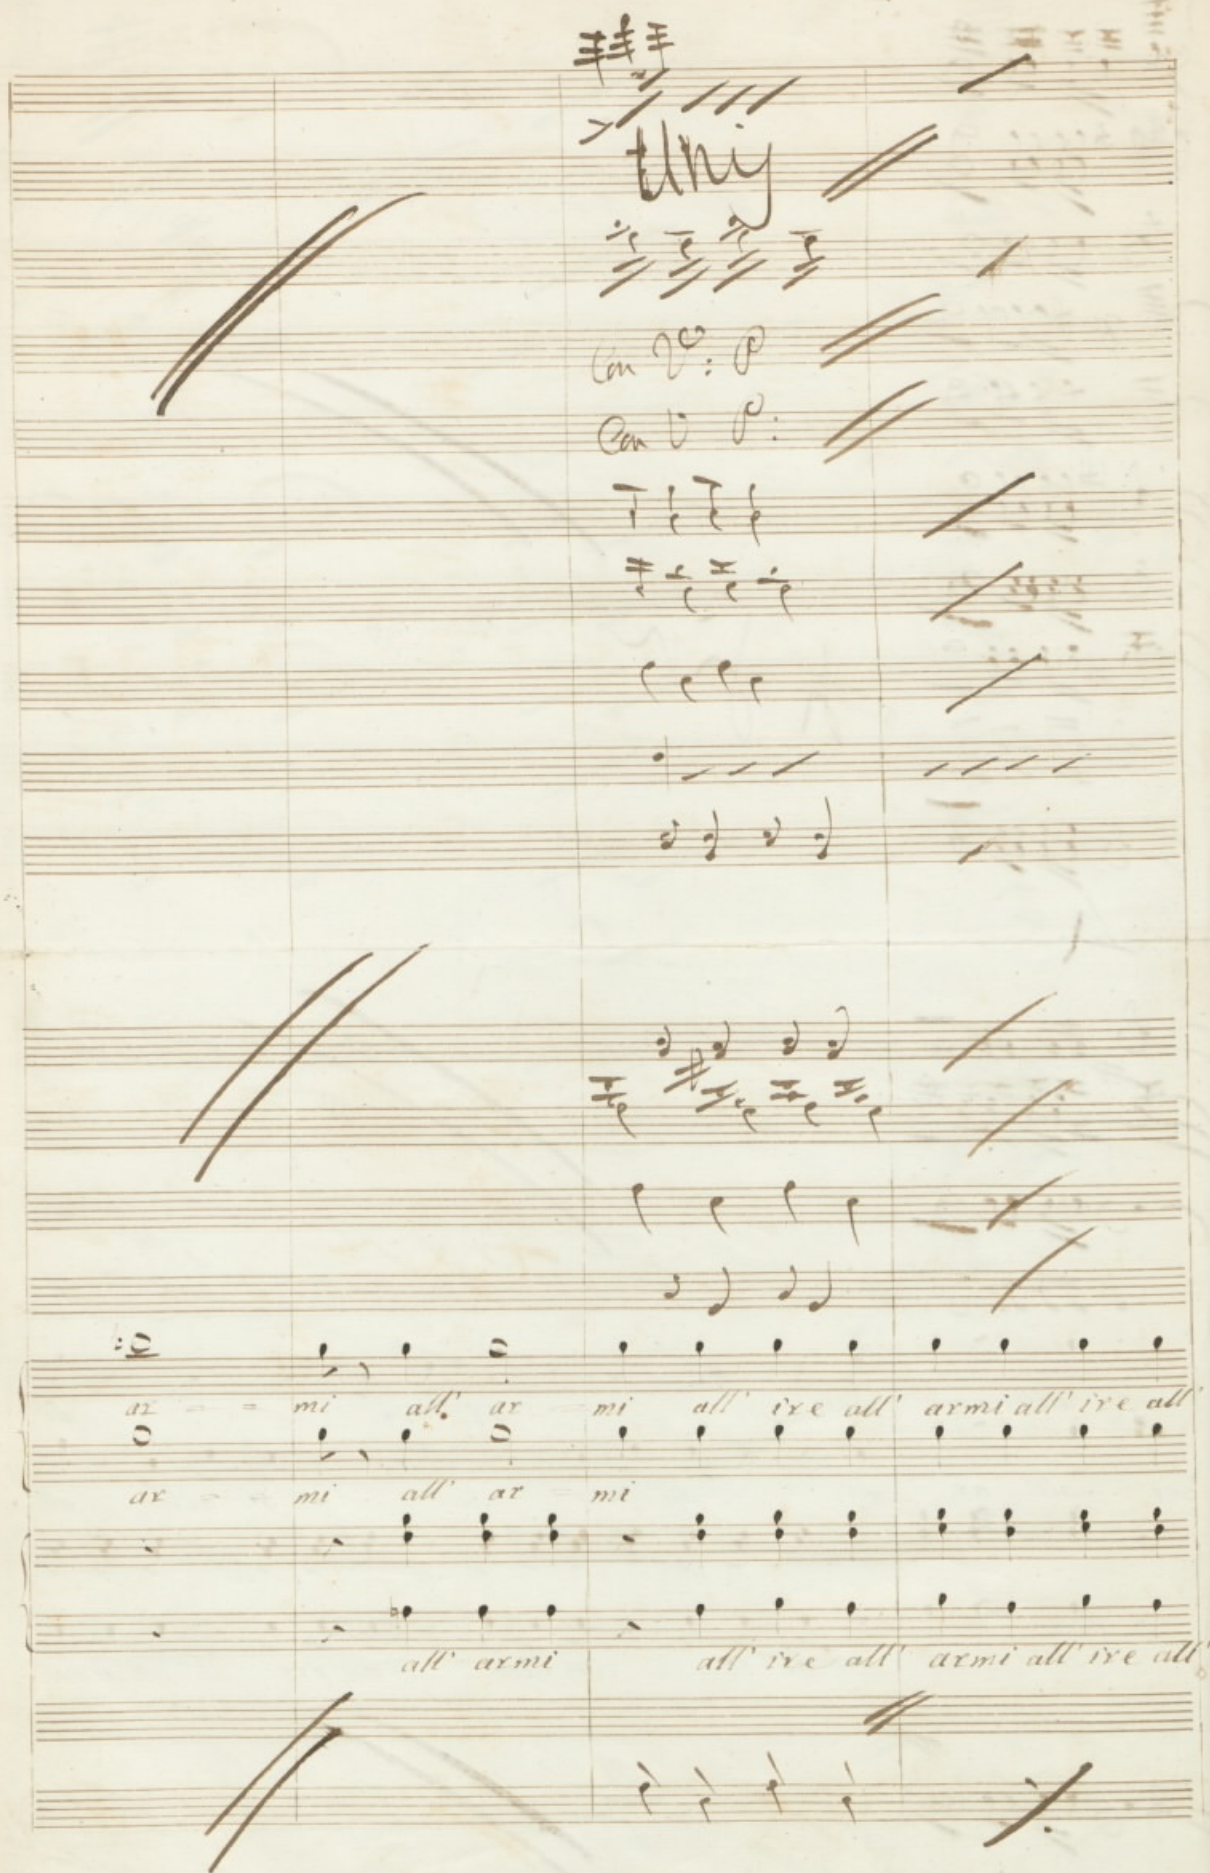 Unis
Con V: P
Con V P:
ar - - mi all' ar mi all' ire all' armi all' ire all'
ar - - mi all' ar mi
all' armi all' ire all' armi all' ire all'